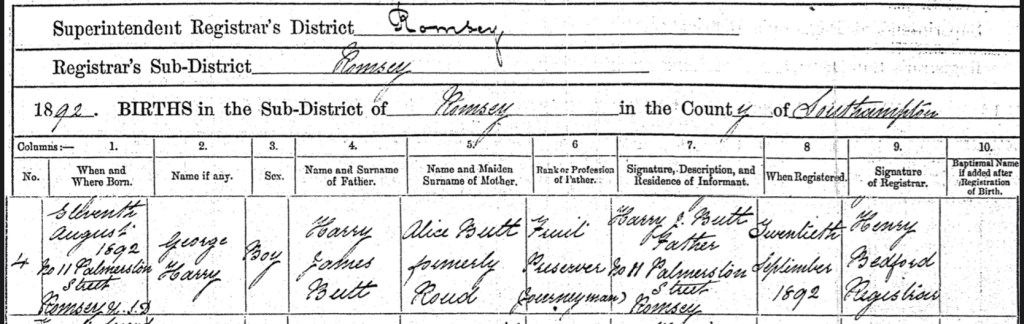 Superintendent Registrar's District Romsey
Registrar's Sub-District Romsey
1892. BIRTHS in the Sub-District of Romsey in the County of Southampton
Columns:— 1. 2. 3. 4. 5. 6 7. 8 9. 10.
No. When and Where Born. Name if any. Sex. Name and Surname of Father. Name and Maiden Surname of Mother. Rank or Profession of Father. Signature, Description, and Residence of Informant. When Registered. Signature of Registrar. Baptismal Name if added after Registration of Birth.
4
Eleventh
August
1892
No 11 Palmerston
Street
Romsey U.S.D
George
Harry
Boy
Harry
James
Butt
Alice Butt
formerly
Roud
Fruit
Preserver
(Journeyman)
Harry J. Butt
Father
No 11 Palmerston
Street
Romsey
Twentieth
September
1892
Henry
Bedford
Registrar